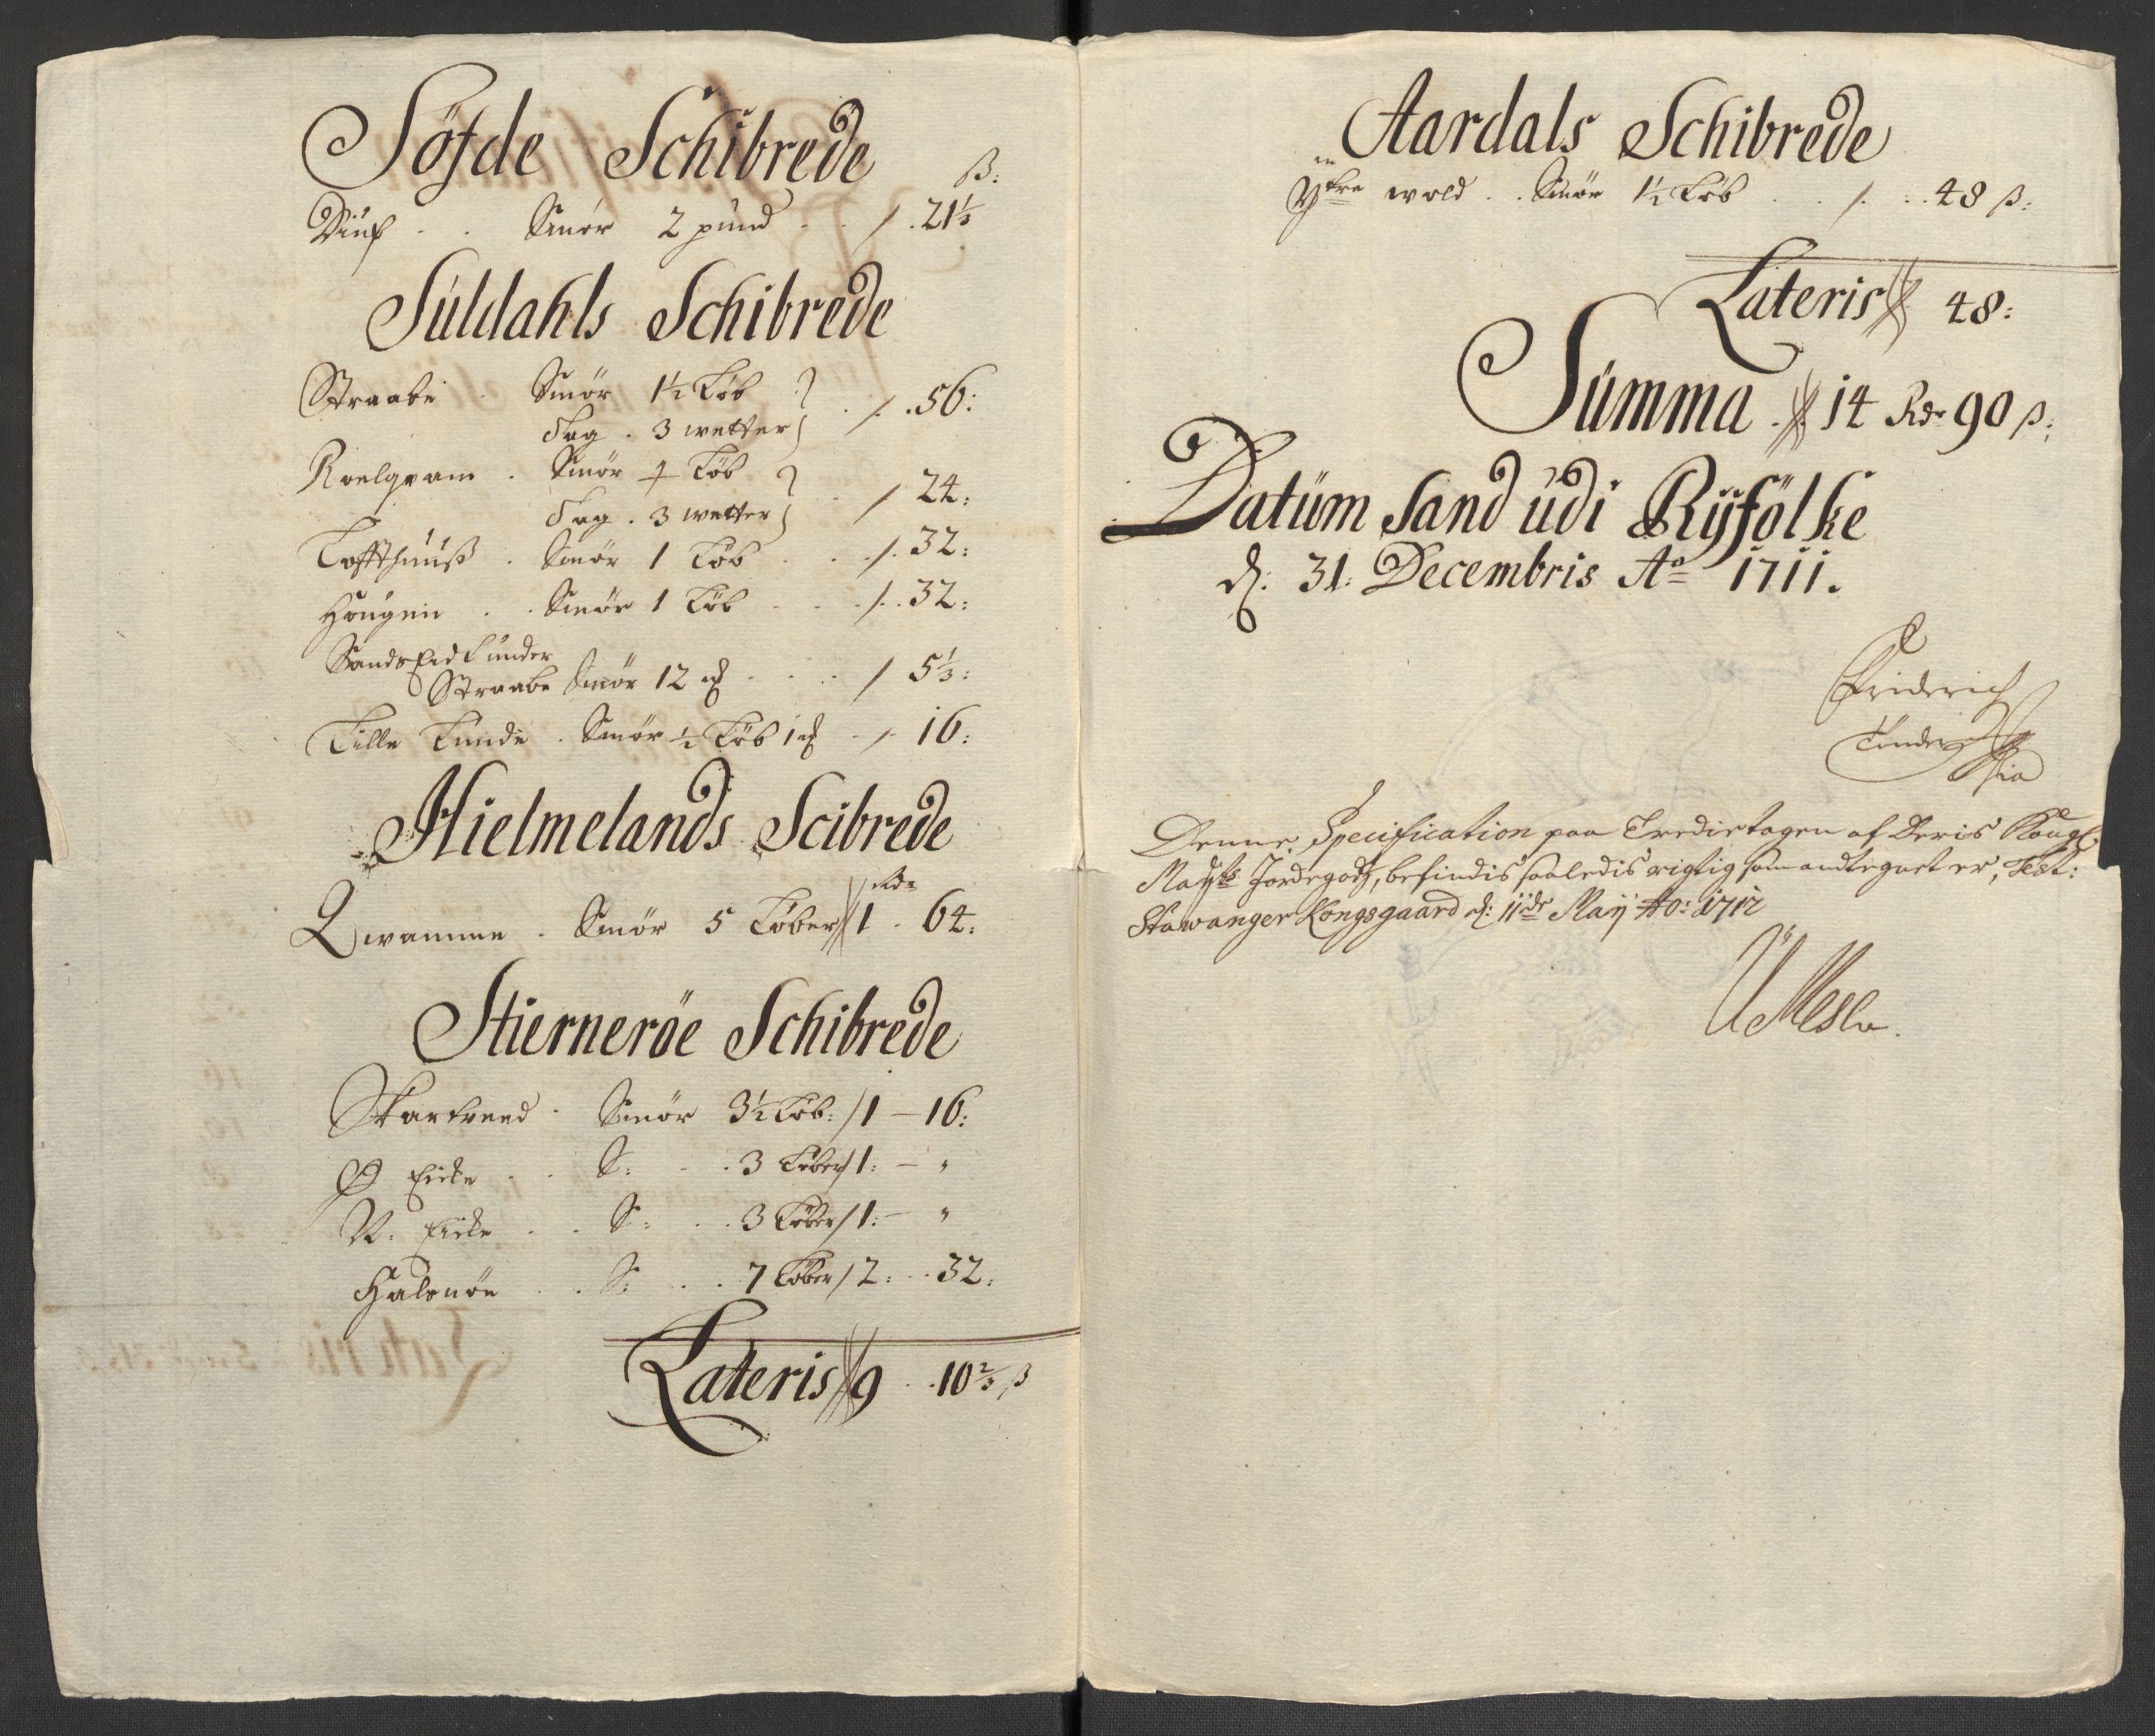 Söfde Schibrede
ß:
Smör 2 pund . . /. 21⅓
Süldahls Schibrede
Straabe . Smör 1½ Löb
Sag . 3 wetter . /. .56:
Roelqvam . Smör Löb
Sag . 3 wetter . / 24:
Toffthuuß . Smör 1 Löb . . ./. 32:
Hougen . . Smör 1 Löb . . . ./. .32:
Sands Eid under
Straabe Smör 12 . . . . / 5⅓:
Tille Lunde . Smör ½ Löb 1 . /. 16:
Hielmelands Scibrede
Rdr
Qwamme . Smör 5 Löber 1 . 64:
Stierneröe Schibrede
Skartved . Smör 3½ Löb: / 1 — 16:
Ø Eicke . . S: . . 3 Löber / 1: — "
N. Eicke . . S: . . 3 Löber / 1: — "
Halsnöe . . S: . . . 7 Löber / 2: . . 32:
Lateris 9 . . 10⅔ ß
Aardals Schibrede
Ytre wold . . Smör 1½ Löb . . /. . . 48 ß:
Lateris 48:
Summa . 14 Rdr 90 ß:
Datüm Sand üdi Rÿfölke
d: 31: Decembris Ao 1711.
Friderich
Tønder
Denne Specification paa Tredietagen af Deris Kongl:
Mayts Jordegodz, befindis saaledis rigtig som andtegnet er, Test:
Stawanger Kongsgaard d: 11de Maÿ Ao: 1712